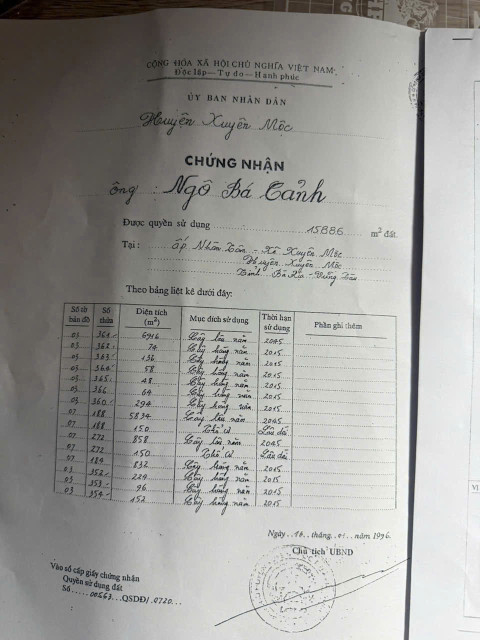 CỘNG HÒA XÃ HỘI CHỦ NGHĨA VIỆT NAM
Độc lập—Tự do—Hạnh phúc
ỦY BAN NHÂN DÂN
Huyện Xuyên Mộc
CHỨNG NHẬN
ông : Ngô Bá Cảnh
Được quyền sử dụng 15886 m² đất.
Tại : ấp Nhân Tâm - Xã Xuyên Mộc
Huyện Xuyên Mộc
Tỉnh Bà Rịa - Vũng Tàu
Theo bảng liệt kê dưới đây:
Số tờ bản đồ Số thửa Diện tích (m²) Mục đích sử dụng Thời hạn sử dụng Phần ghi thêm
03 361 6916 Cây lâu năm 2045
03 362 74 Cây hàng năm 2015
03 363 136 Cây hàng năm 2015
03 364 58 Cây hàng năm 2015
03 365 48 Cây hàng năm 2015
03 366 64 Cây hàng năm 2015
03 360 294 Cây hàng năm 2015
07 188 5834 Cây lâu năm 2045
07 188 150 Thổ cư Lâu dài
07 272 858 Cây lâu năm 2045
07 272 150 Thổ cư Lâu dài
07 189 832 Cây hàng năm 2015
03 352 229 Cây hàng năm 2015
03 353 96 Cây hàng năm 2015
03 354 152 Cây hàng năm 2015
Ngày 18 tháng 01 năm 1996
Chủ tịch UBND
Vào sổ cấp giấy chứng nhận
Quyền sử dụng đất
Số 00563 QSDĐ/ 0720